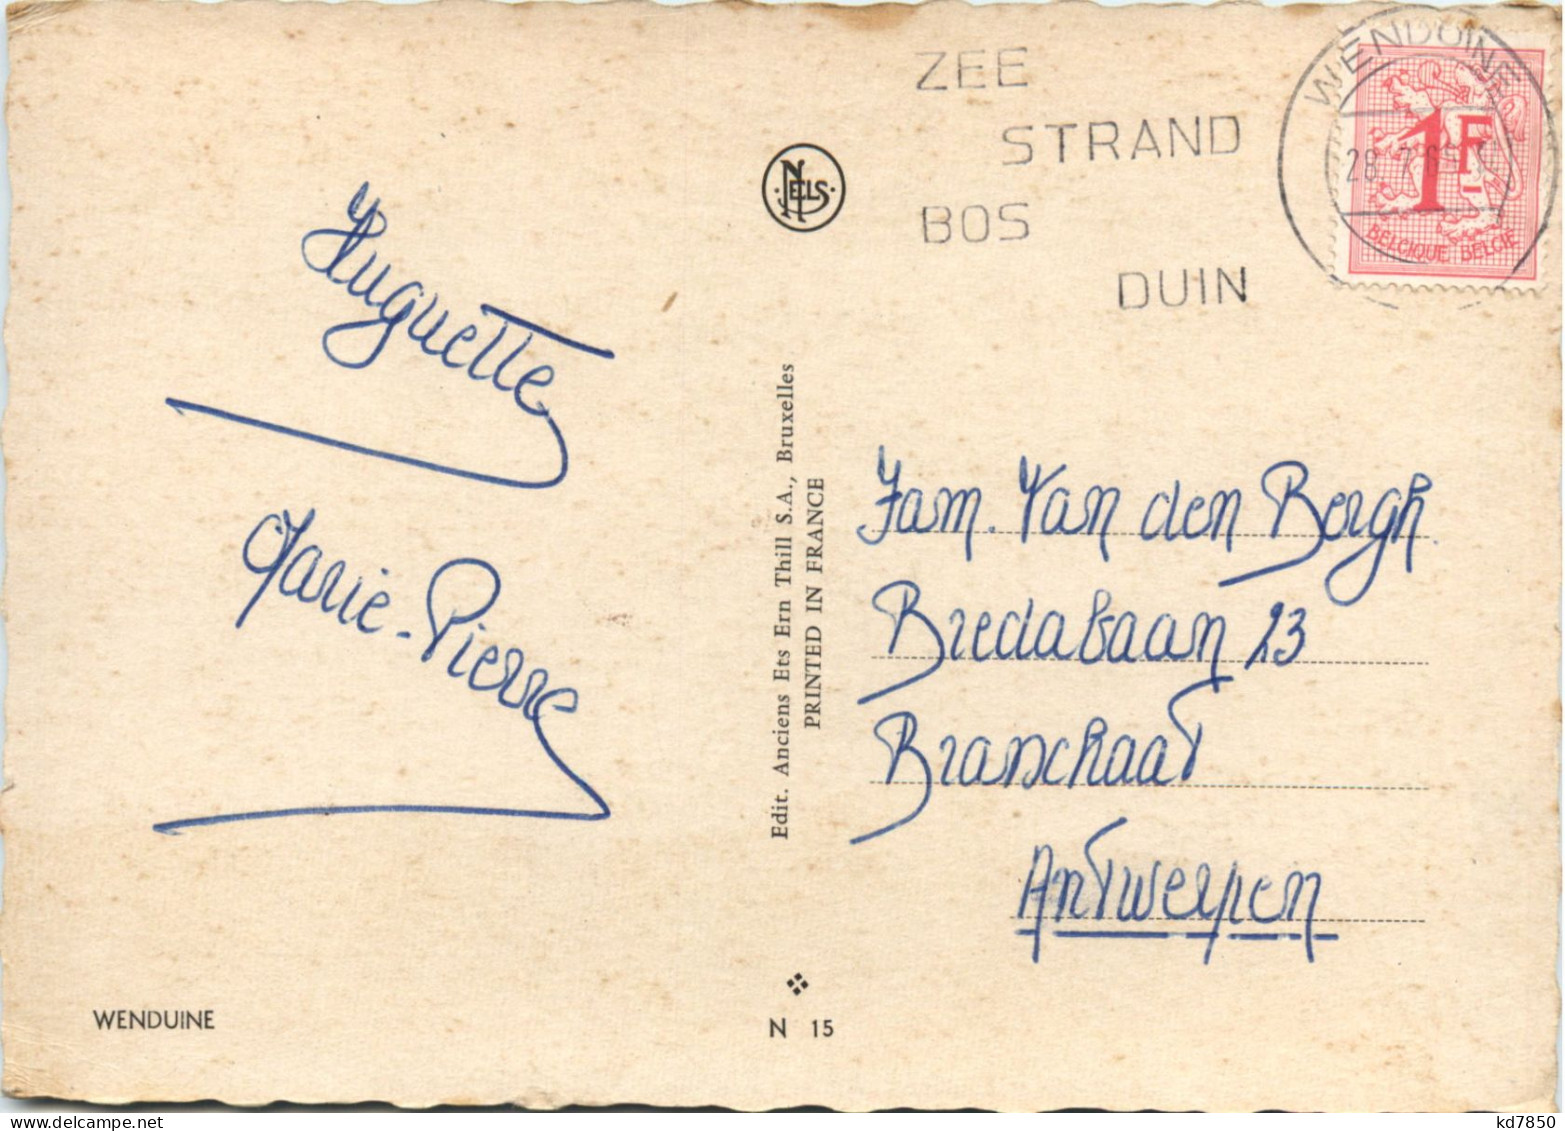 ZEE
STRAND
BOS
DUIN
WENDUINE
28. 7. 65
1F
BELGIQUE BELGIE
NELS
Huguette
Marie-Pierre
Edit. Anciens Ets Ern Thill S.A., Bruxelles
PRINTED IN FRANCE
Fam. Van den Bergh.
Bredabaan 23
Braschaat
Antwerpen
WENDUINE
N 15
kd7850